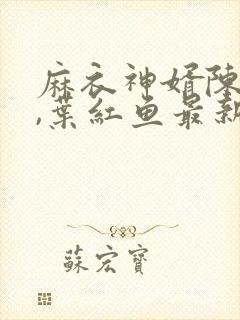 麻衣神婿陈
,葉紅鱼最新
蘇宏寶